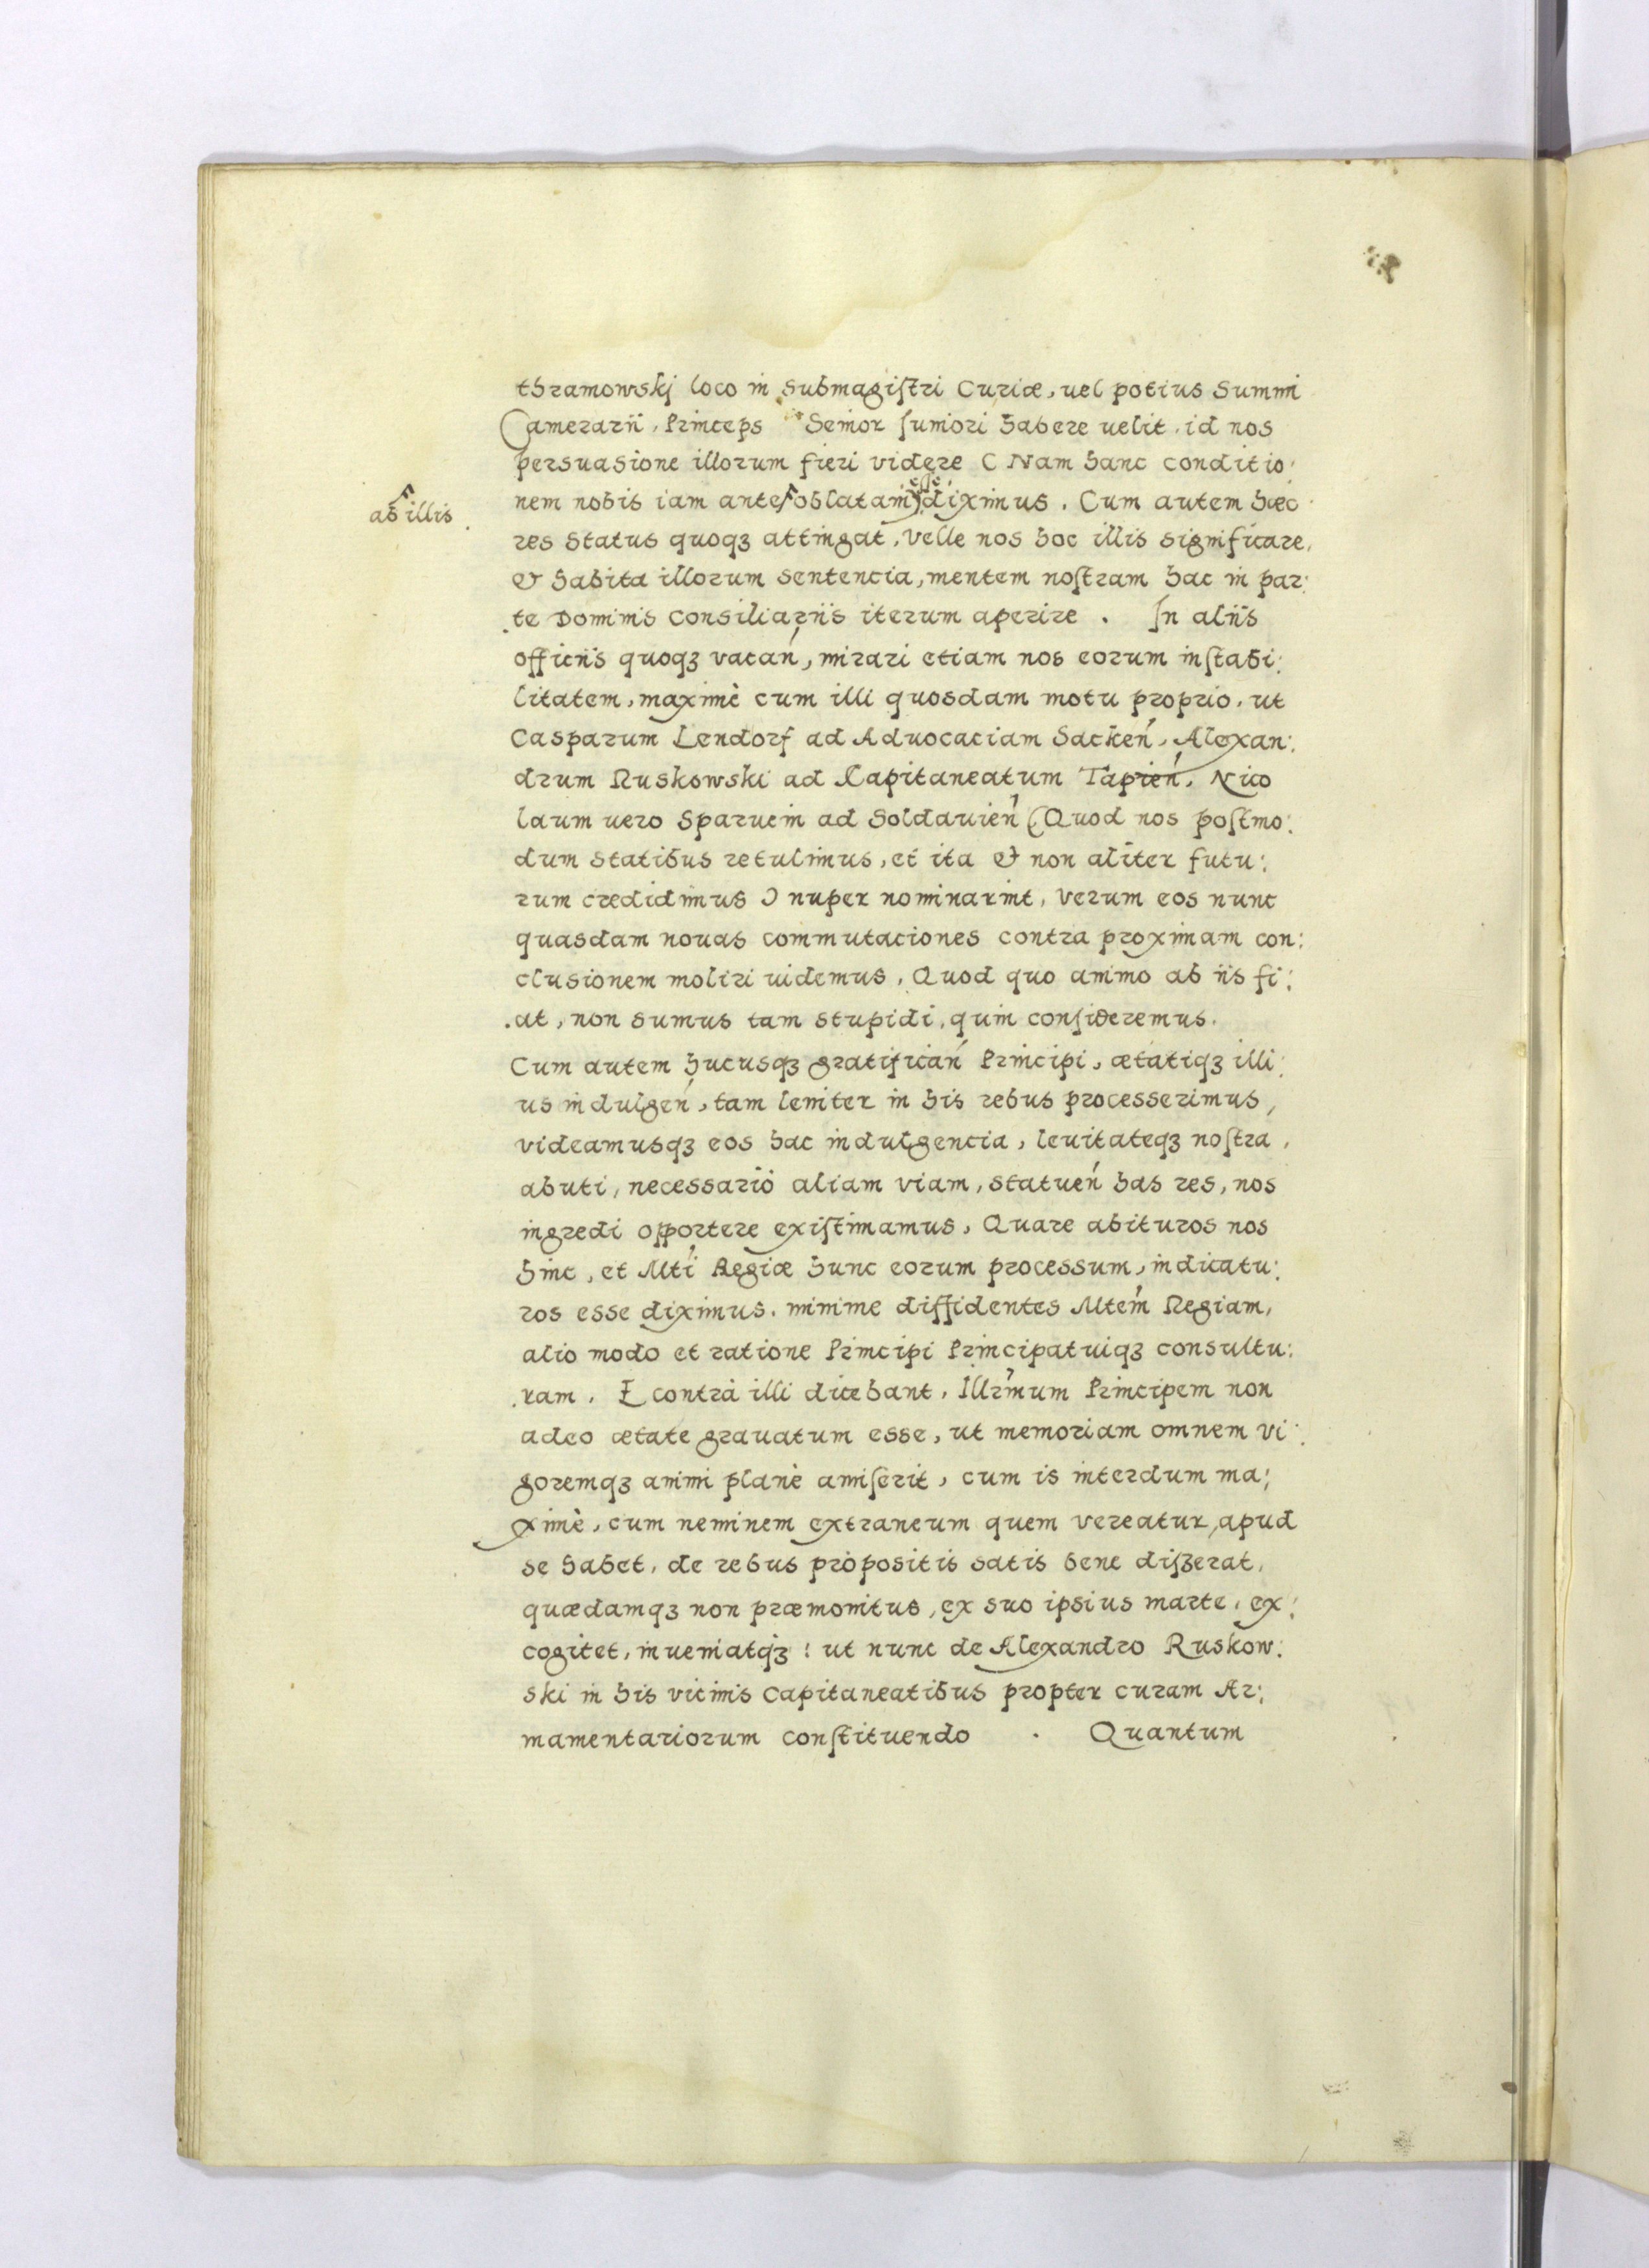 thramowskj loco in Submagistri Curiæ, uel potius Summi
Camerarii, Princeps Senior Juniori habere uelit, id nos
persuasione illorum fieri videre ( Nam hanc conditio:
nem nobis iam ante oblatam) esse diximus. Cum autem hæc
ab illis.
res Status quoqꝫ attingat, Velle nos hoc illis significare,
et habita illorum sentencia, mentem nostram hac in par:
te Dominis Consiliariis iterum aperire. In aliis
officiis quoqꝫ vacań, mirari etiam nos eorum instabi:
litatem, maximè cum illi quosdam motu proprio, ut
Casparum Lendorf ad Aduocaciam Sackeń, Alexan:
drum Ruskowski ad Capitaneatum Tapień, Nico
laum uero Sparuein ad Soldauień (Quod nos postmo:
dum statibus retulimus, et ita et non aliter futu:
rum credidimus ) nuper nominarint, Verum eos nunc
quasdam nouas commutaciones contra proximam con:
clusionem moliri uidemus, Quod quo animo ab iis fi:
at, non sumus tam stupidi, quin consideremus.
Cum autem hucusqꝫ gratificań Principi, ætatiqꝫ illi:
us indulgeń, tam leniter in his rebus processerimus,
videamusqꝫ eos hac indulgencia, leuitateqꝫ nostra,
abuti, necessariò aliam viam, statueń has res, nos
ingredi opportere existimamus, Quare abituros nos
hinc, et Mti Regiæ hunc eorum processum, indicatu:
ros esse diximus, minime diffidentes Mtem Regiam,
alio modo et ratione Principi Principatuiqꝫ consultu:
ram. E contrà illi dicebant, Illrmum Principem non
adeo ætate grauatum esse, ut memoriam omnem vi:
goremqꝫ animi planè amiserit, cum is interdum ma:
ximè, cum neminem extraneum quem vereatur, apud
se habet, de rebus propositis satis bene disserat,
quædamqꝫ non præmonitus, ex suo ipsius marte, ex:
cogitet, inueniatqꝫ: ut nunc de Alexandro Ruskow:
ski in his vicinis Capitaneatibus propter curam Ar:
mamentariorum constituendo. Quantum